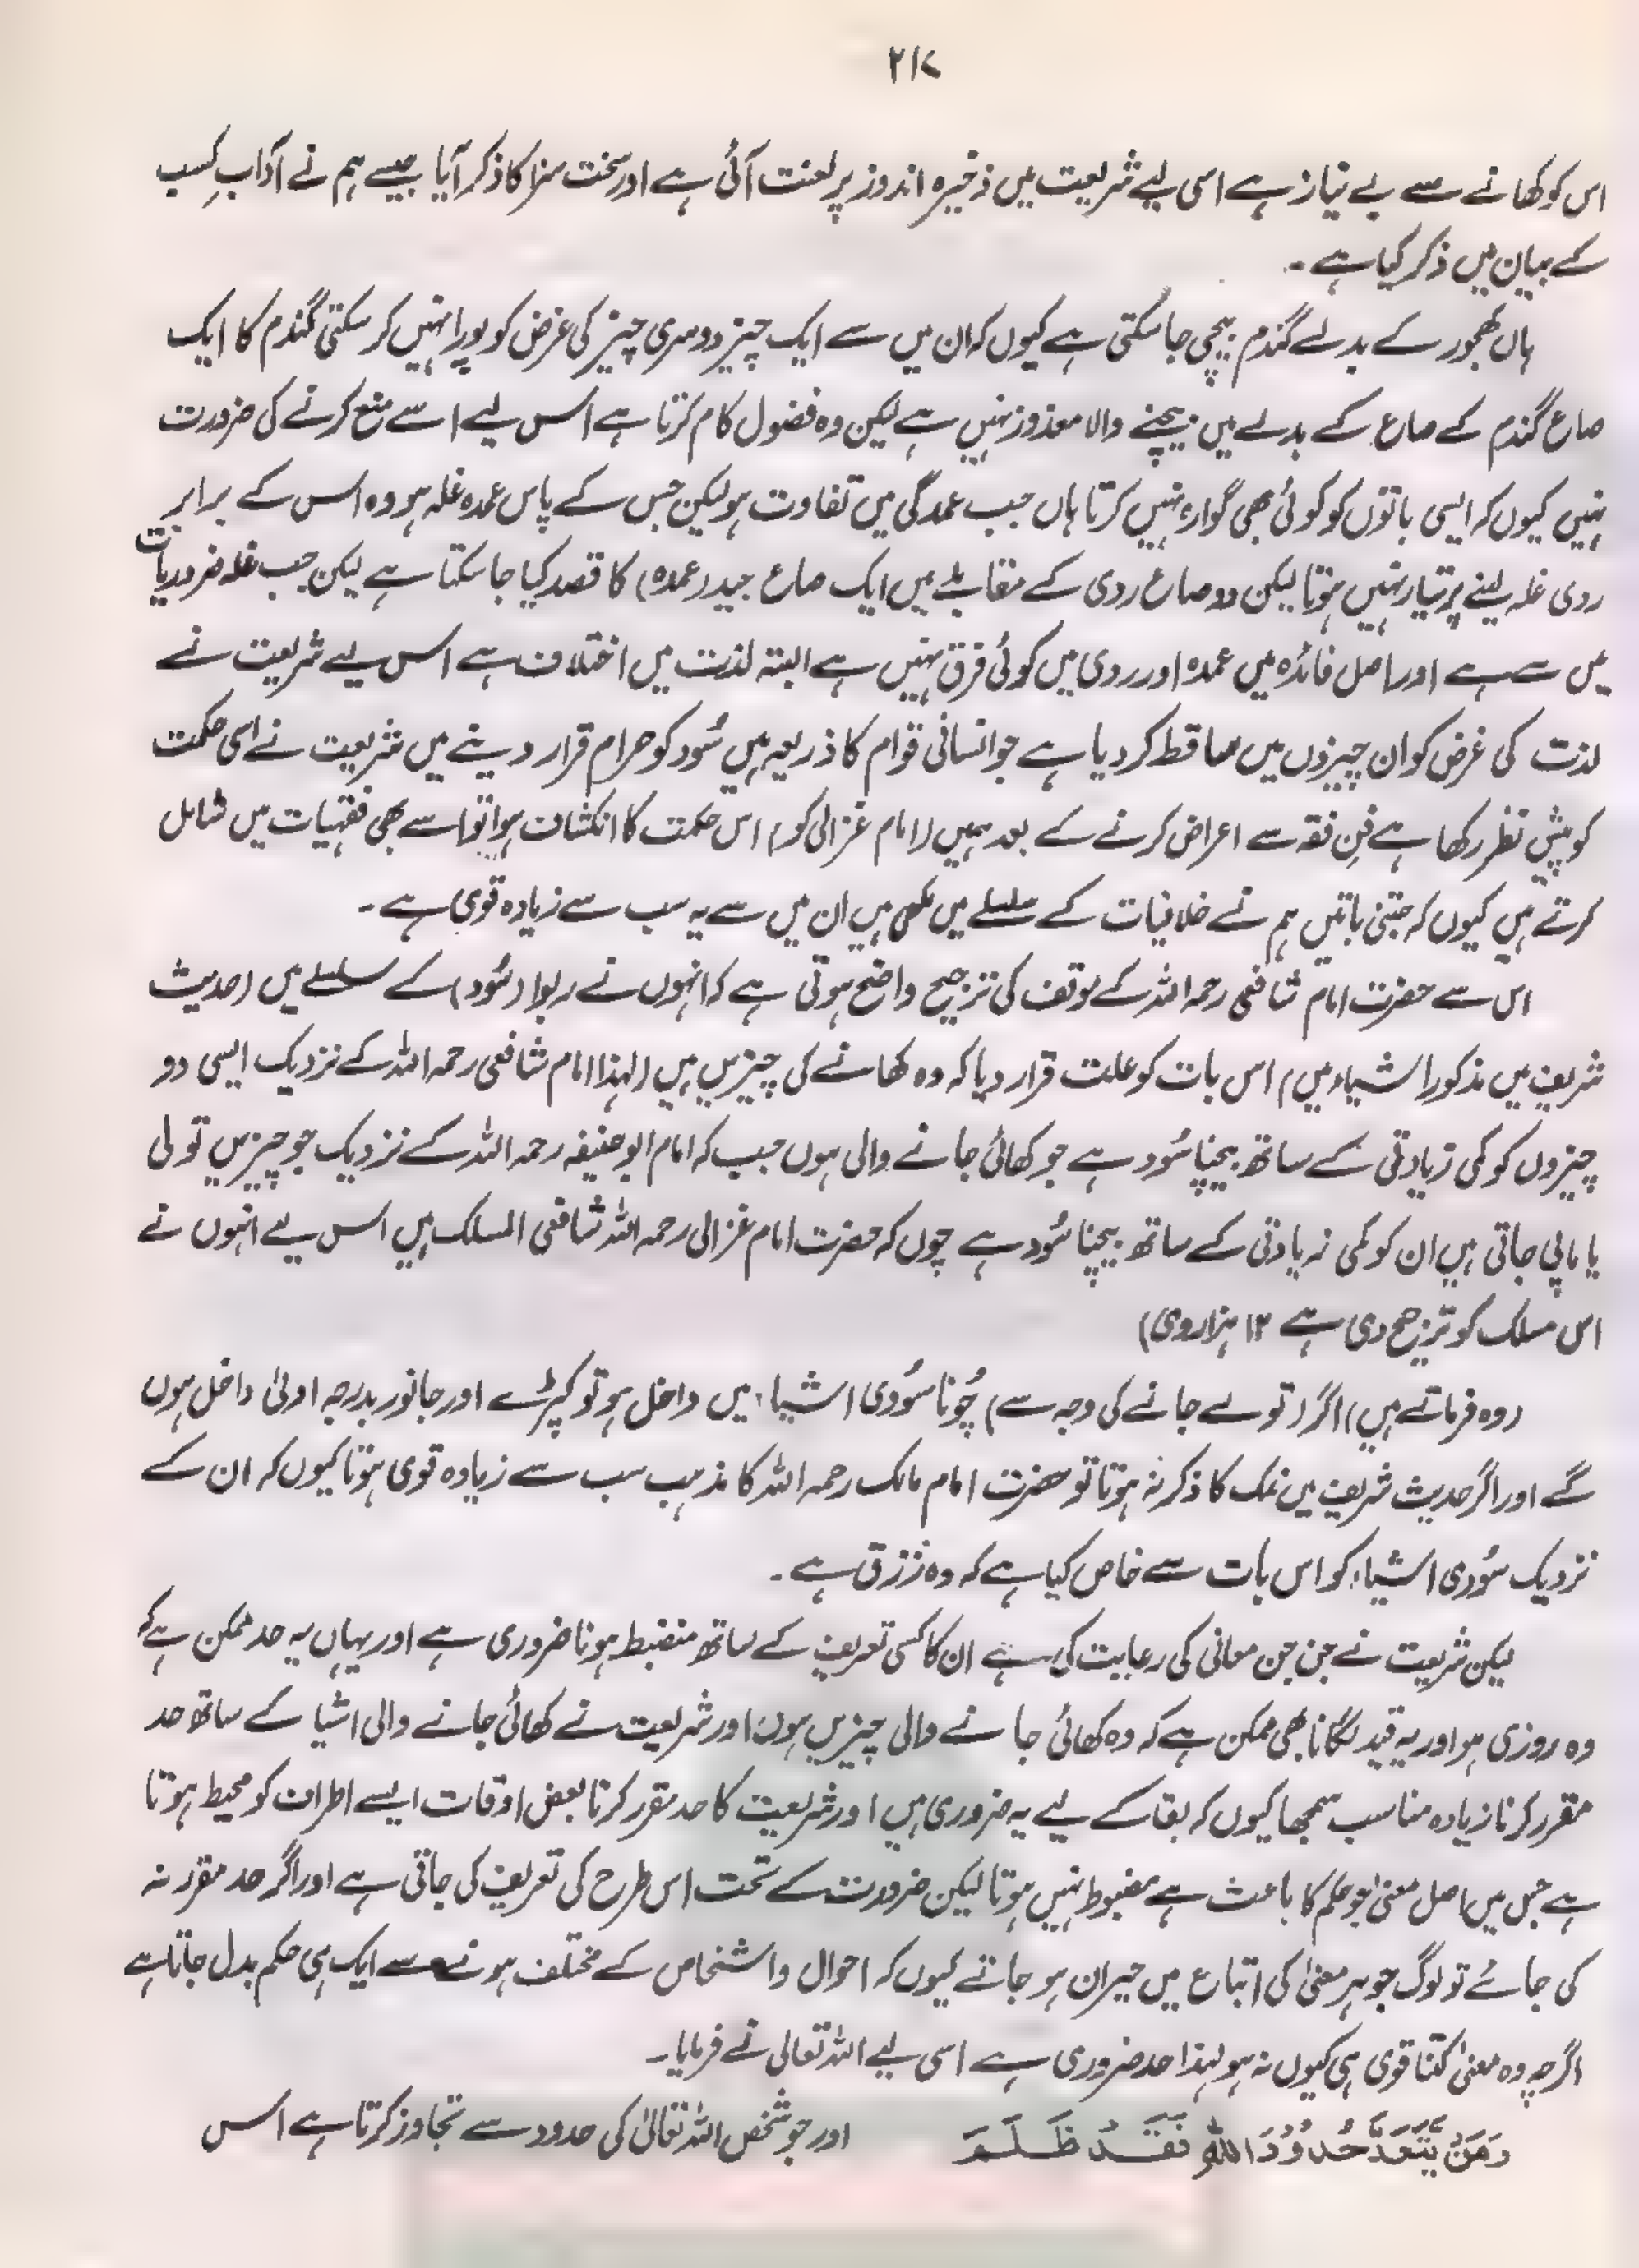 ۲۱۷
اس کو کھانے سے بے نیاز ہے اسی لیے شریعت میں ذخیرہ اندوز پر لعنت آئی ہے اور سخت سزا کا ذکر آیا جیسے ہم نے آدابِ کسب
کے بیان میں ذکر کیا ہے ۔
ہاں کھجور کے بدلے گندم بیچی جا سکتی ہے کیوں کہ ان میں سے ایک چیز دوسری چیز کی غرض کو پورا نہیں کر سکتی گندم کا ایک
صاع گندم کے صاع کے بدلے میں بیچنے والا معذور نہیں ہے لیکن وہ فضول کام کرتا ہے اس لیے اسے منع کرنے کی ضرورت
نہیں کیوں کہ ایسی باتوں کو کوئی بھی گوارہ نہیں کرتا ہاں جب عمدگی میں تفاوت ہو لیکن جس کے پاس عمدہ غلہ ہو وہ اس کے برابر
ردی غلہ لینے پر تیار نہیں ہوتا لیکن دو صاع ردی کے مقابلے میں ایک صاع جید (عمدہ) کا قصد کیا جا سکتا ہے لیکن جب غلہ ضروریات
میں سے ہے اور اصل فائدہ میں عمدہ اور ردی میں کوئی فرق نہیں ہے البتہ لذت میں اختلاف ہے اس لیے شریعت نے
لذت کی غرض کو ان چیزوں میں ساقط کر دیا ہے جو انسانی قوام کا ذریعہ ہیں سُود کو حرام قرار دینے میں شریعت نے اسی حکمت
کو پیش نظر رکھا ہے فنِ فقہ سے اعراض کرنے کے بعد ہمیں (امام غزالی کو) اس حکمت کا انکشاف ہوا تو اسے بھی فقہیات میں شامل
کرتے ہیں کیوں کہ جتنی باتیں ہم نے خلافیات کے سلسلے میں لکھی ہیں ان میں سے یہ سب سے زیادہ قوی ہے ۔
اس سے حضرت امام شافعی رحمہ اللہ کے موقف کی ترجیح واضح ہوتی ہے کہ انہوں نے ربوا (سُود) کے سلسلے میں (حدیث
شریف میں مذکور اشیاء میں) اس بات کو علت قرار دیا کہ وہ کھانے کی چیزیں ہیں (لہذا امام شافعی رحمہ اللہ کے نزدیک ایسی دو
چیزوں کو کمی زیادتی کے ساتھ بیچنا سُود ہے جو کھائی جانے والی ہوں جب کہ امام ابو حنیفہ رحمہ اللہ کے نزدیک جو چیزیں تولی
یا ماپی جاتی ہیں ان کو کمی زیادتی کے ساتھ بیچنا سُود ہے چوں کہ حضرت امام غزالی رحمہ اللہ شافعی المسلک ہیں اس لیے انہوں نے
اس مسلک کو ترجیح دی ہے ۱۲ ہزاروی)
(وہ فرماتے ہیں) اگر (تولے جانے کی وجہ سے) چُونا سُودی اشیاء میں داخل ہو تو کپڑے اور جانور بدرجہ اولیٰ داخل ہوں
گے اور اگر حدیث شریف میں نمک کا ذکر نہ ہوتا تو حضرت امام مالک رحمہ اللہ کا مذہب سب سے زیادہ قوی ہوتا کیوں کہ ان کے
نزدیک سُودی اشیاء کو اس بات سے خاص کیا ہے کہ وہ رزق ہے ۔
لیکن شریعت نے جن جن معانی کی رعایت کی ہے ان کا کسی تعریف کے ساتھ منضبط ہونا ضروری ہے اور یہاں یہ حد ممکن ہے کہ
وہ روزی ہو اور یہ قید لگانا بھی ممکن ہے کہ وہ کھائی جانے والی چیزیں ہوں اور شریعت نے کھائی جانے والی اشیا کے ساتھ حد
مقرر کرنا زیادہ مناسب سمجھا کیوں کہ بقا کے لیے یہ ضروری ہیں اور شریعت کا حد مقرر کرنا بعض اوقات ایسے اطراف کو محیط ہوتا
ہے جس میں اصل معنیٰ جو حکم کا باعث ہے مضبوط نہیں ہوتا لیکن ضرورت کے تحت اس طرح کی تعریف کی جاتی ہے اور اگر حد مقرر نہ
کی جائے تو لوگ جوہر معنیٰ کی اتباع میں حیران ہو جاتے کیوں کہ احوال و اشخاص کے مختلف ہونے سے ایک ہی حکم بدل جاتا ہے
اگرچہ وہ معنیٰ کتنا قوی ہی کیوں نہ ہو لہذا حد ضروری ہے اسی لیے اللہ تعالی نے فرمایا ۔
وَمَنْ يَّتَعَدَّ حُدُوْدَ اللّٰهِ فَقَدْ ظَلَمَ اور جو شخص اللہ تعالیٰ کی حدود سے تجاوز کرتا ہے اس